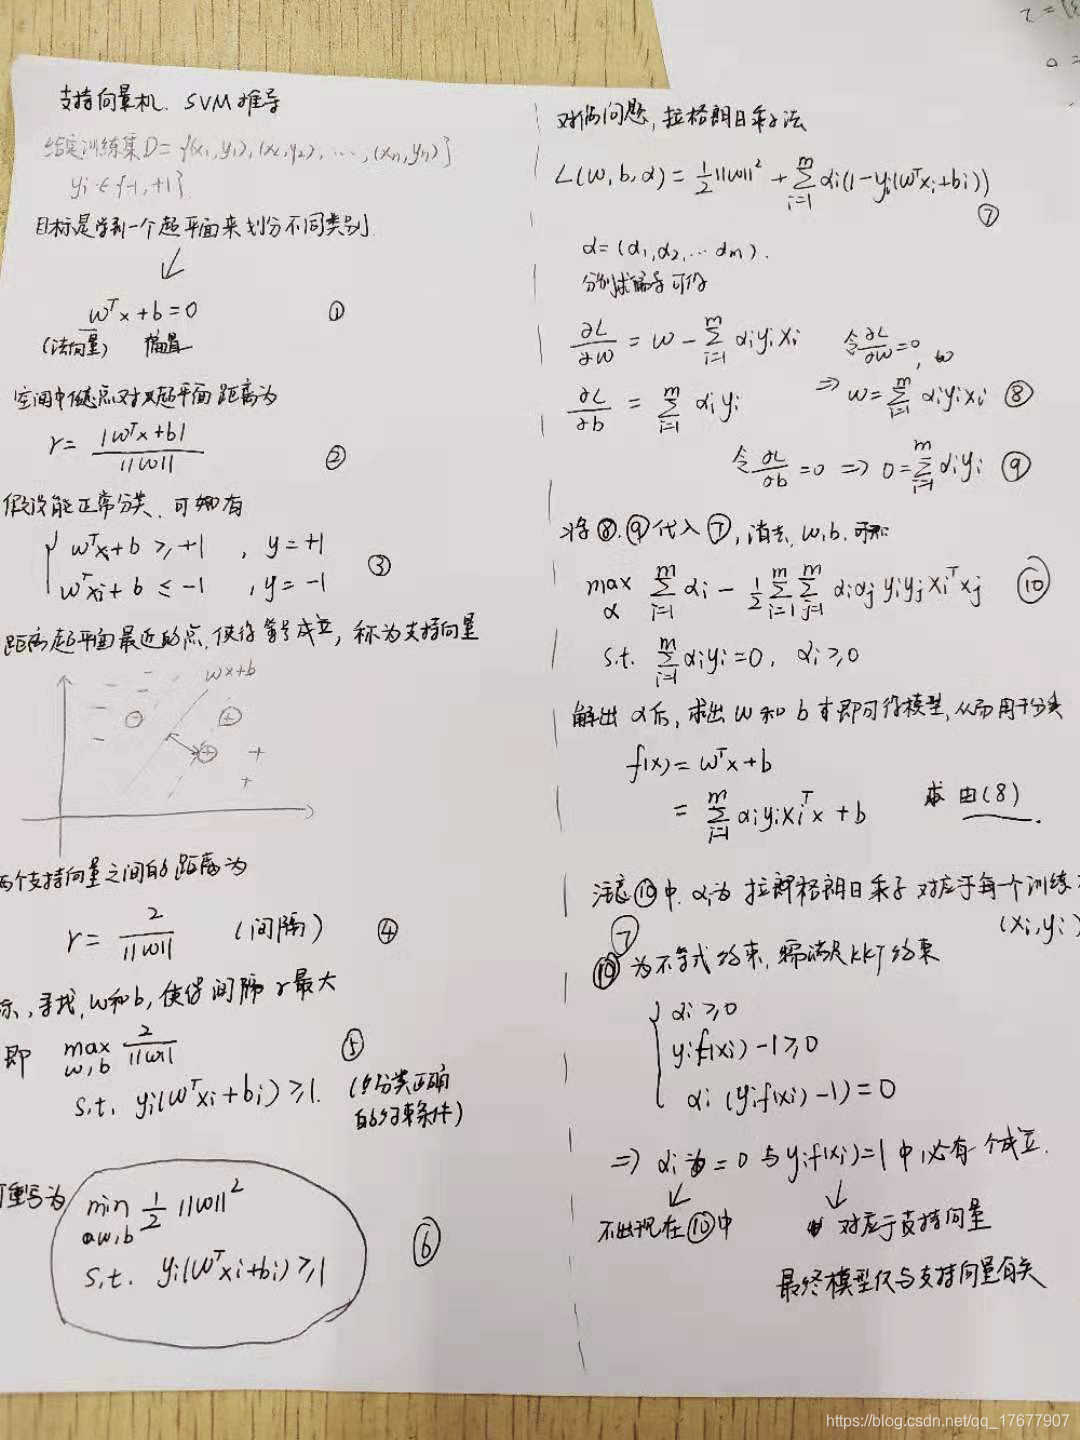 支持向量机、SVM推导
给定训练集D={(x₁,y₁),(x₂,y₂),…,(xₙ,yₙ)}
yᵢ∈{-1,+1}
目标是学到一个超平面来划分不同类别
wᵀx+b=0 ①
(法向量) 偏置
空间中任意点对超平面距离为
r=|wᵀx+b|/||w|| ②
假设能正常分类、可知有
{ wᵀx+b≥+1 , y=+1
wᵀxᵢ+b≤-1 , y=-1 ③
距离超平面最近的点,使得等号成立,称为支持向量
wx+b
两个支持向量之间的距离为
r=2/||w|| (间隔) ④
标,寻找,w和b,使得间隔r最大
即 max w,b 2/||w|| ⑤
s.t. yᵢ(wᵀxᵢ+bᵢ)≥1. (分类正确
的约束条件)
可重写为 min w,b 1/2 ||w||²
s.t. yᵢ(wᵀxᵢ+bᵢ)≥1 ⑥
对偶问题,拉格朗日乘子法
L(w,b,α)=1/2||w||²+∑ᵢ₌₁ᵐ αᵢ(1-yᵢ(wᵀxᵢ+bᵢ))
⑦
α=(α₁,α₂,…αₘ).
分别求偏导可得
∂L/∂w = w-∑ᵢ₌₁ᵐ αᵢyᵢxᵢ 令∂L/∂w=0, w
⇒ w=∑ᵢ₌₁ᵐ αᵢyᵢxᵢ ⑧
∂L/∂b = ∑ᵢ₌₁ᵐ αᵢyᵢ
令∂L/∂b=0 ⇒ 0=∑ᵢ₌₁ᵐ αᵢyᵢ ⑨
将⑧.⑨代入⑦,消去,w,b.可知
max α ∑ᵢ₌₁ᵐ αᵢ - 1/2∑ᵢ₌₁ᵐ∑ⱼ₌₁ᵐ αᵢαⱼyᵢyⱼxᵢᵀxⱼ ⑩
s.t. ∑ᵢ₌₁ᵐ αᵢyᵢ=0, αᵢ≥0
解出α后,求出w和b即可得模型,从而用于分类
f(x)=wᵀx+b
=∑ᵢ₌₁ᵐ αᵢyᵢxᵢᵀx+b 由(8)
注意⑩中.αᵢ为拉格朗日乘子 对应于每个训练
(xᵢ,yᵢ)
⑦
为不等式约束,需满足KKT约束
{ αᵢ≥0
yᵢf(xᵢ)-1≥0
αᵢ(yᵢf(xᵢ)-1)=0
⇒ αᵢ=0与yᵢf(xᵢ)=1中必有一个成立.
不出现在⑩中 对应于支持向量
最终模型仅与支持向量有关
https://blog.csdn.net/qq_17677907